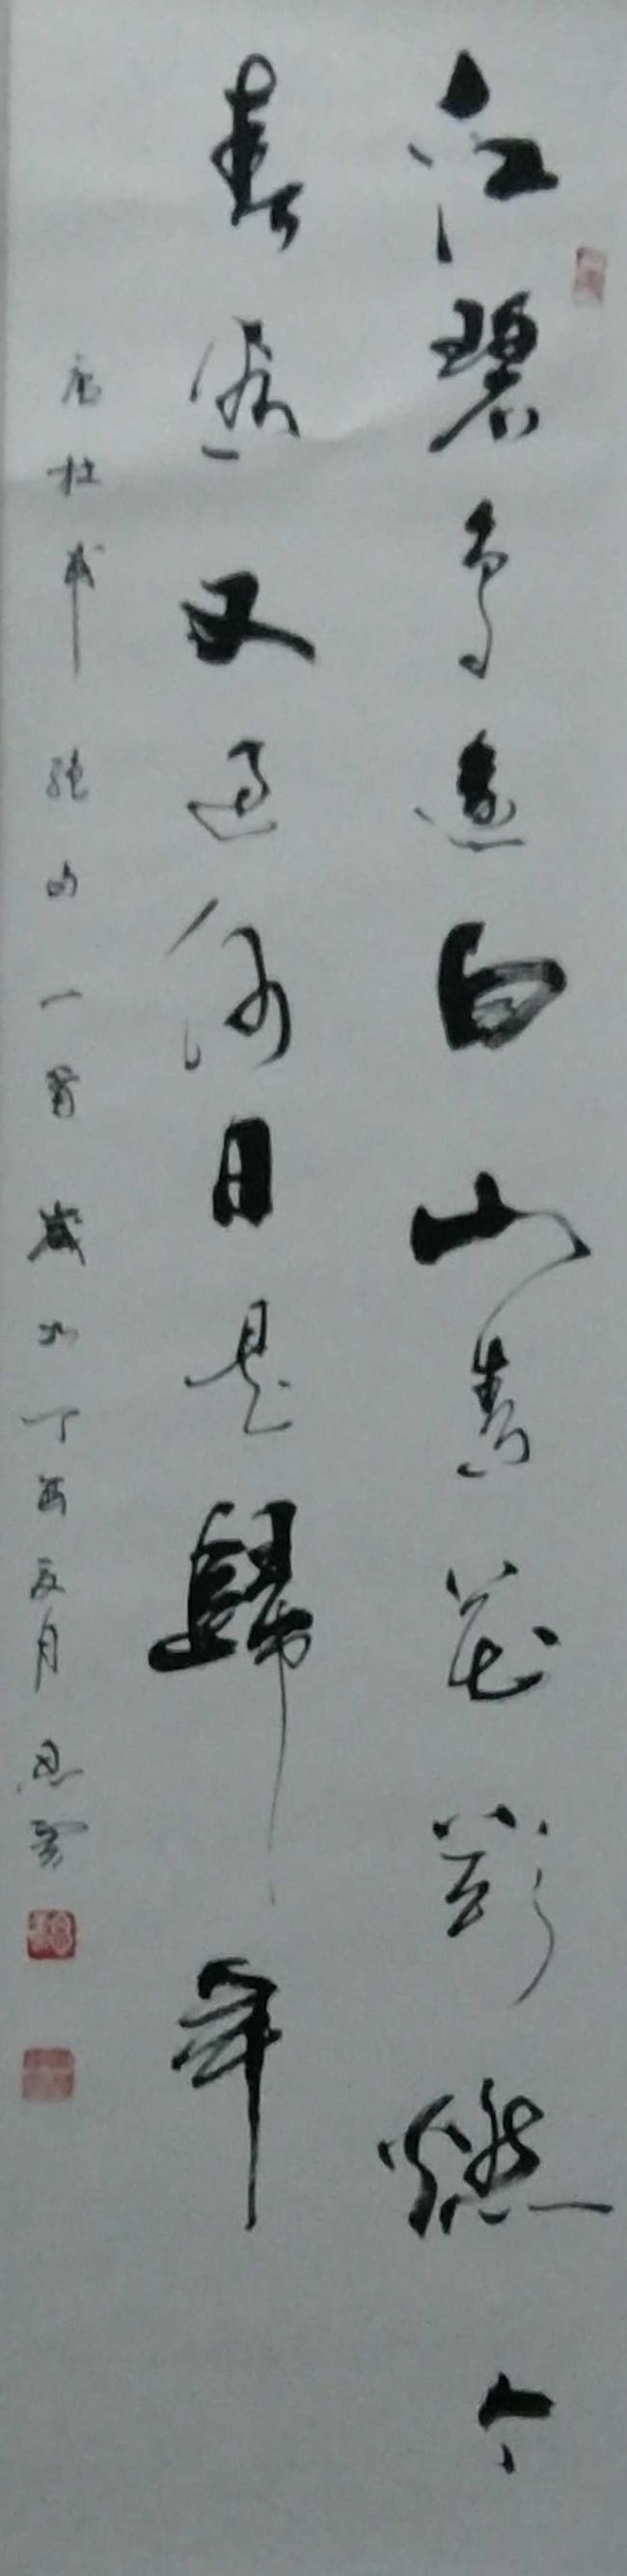 江碧鳥逾白山青花欲燃今
春看又過何日是歸年
唐杜甫絕句一首歲次丁酉夏月